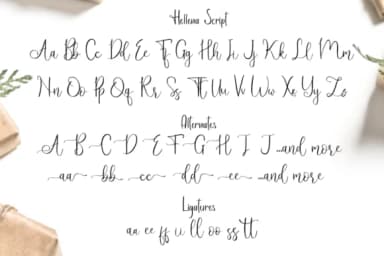 Hellena Script
Aa Bb Cc Dd Ee Ff Gg Hh Ii Jj Kk Ll Mm
Nn Oo Pp Qq Rr Ss Tt Uu Vv Ww Xx Yy Zz
Alternates
A B C D E F G H I J and more
aa bb cc dd ee and more
Ligatures
aa ee ff ii ll oo ss tt